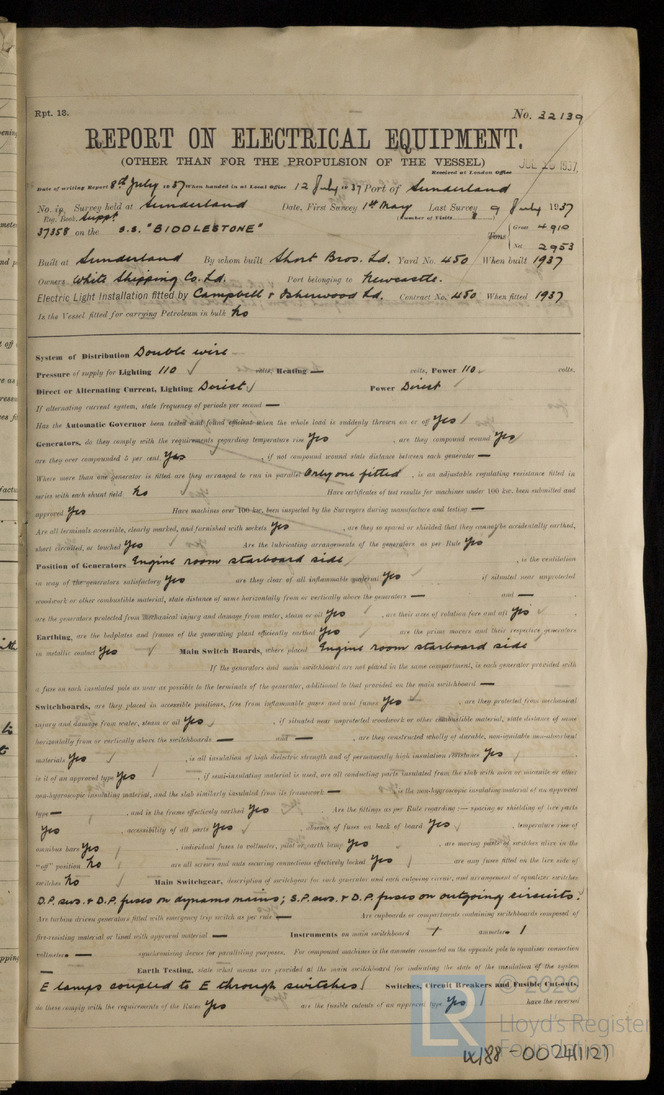 Rpt. 13.
No. 32139
REPORT ON ELECTRICAL EQUIPMENT.
(OTHER THAN FOR THE PROPULSION OF THE VESSEL)
Received at London Office JUL 26 1937
Date of writing Report 8th July 1937 When handed in at Local Office 12 July 1937 Port of Sunderland
No. in Survey held at Sunderland Date, First Survey 1st May Last Survey 9 July 1937
Reg. Book. Suppt (Number of Visits 8)
37358 on the S.S. "BIDDLESTONE" Tons Gross 4910
Net 2953
Built at Sunderland By whom built Short Bros. Ld. Yard No. 450 When built 1937
Owners White Shipping Co. Ld. Port belonging to Newcastle.
Electric Light Installation fitted by Campbell & Isherwood Ld. Contract No. 450 When fitted 1937
Is the Vessel fitted for carrying Petroleum in bulk No
System of Distribution Double wire
Pressure of supply for Lighting 110 volts, Heating — volts, Power 110 volts.
Direct or Alternating Current, Lighting Direct Power Direct
If alternating current system, state frequency of periods per second —
Has the Automatic Governor been tested and found efficient when the whole load is suddenly thrown on or off Yes
Generators, do they comply with the requirements regarding temperature rise Yes , are they compound wound Yes
are they over compounded 5 per cent. Yes , if not compound wound state distance between each generator —
Where more than one generator is fitted are they arranged to run in parallel Only one fitted , is an adjustable regulating resistance fitted in
series with each shunt field No Have certificates of test results for machines under 100 kw. been submitted and
approved Yes Have machines over 100 kw. been inspected by the Surveyors during manufacture and testing —
Are all terminals accessible, clearly marked, and furnished with sockets Yes , are they so spaced or shielded that they cannot be accidentally earthed,
short circuited, or touched Yes Are the lubricating arrangements of the generators as per Rule Yes
Position of Generators Engine room starboard side , is the ventilation
in way of the generators satisfactory Yes are they clear of all inflammable material Yes if situated near unprotected
woodwork or other combustible material, state distance of same horizontally from or vertically above the generators — and —
are the generators protected from mechanical injury and damage from water, steam or oil Yes , are their axes of rotation fore and aft Yes
Earthing, are the bedplates and frames of the generating plant efficiently earthed Yes are the prime movers and their respective generators
in metallic contact Yes Main Switch Boards, where placed Engine room starboard side
If the generators and main switchboard are not placed in the same compartment, is each generator provided with
a fuse on each insulated pole as near as possible to the terminals of the generator, additional to that provided on the main switchboard —
Switchboards, are they placed in accessible positions, free from inflammable gases and acid fumes Yes , are they protected from mechanical
injury and damage from water, steam or oil Yes , if situated near unprotected woodwork or other combustible material, state distance of same
horizontally from or vertically above the switchboards — and — , are they constructed wholly of durable, non-ignitable non-absorbent
materials Yes , is all insulation of high dielectric strength and of permanently high insulation resistance Yes
is it of an approved type Yes , if semi-insulating material is used, are all conducting parts insulated from the slab with mica or micanite or other
non-hygroscopic insulating material, and the slab similarly insulated from its framework — , is the non-hygroscopic insulating material of an approved
type — , and is the frame effectively earthed Yes Are the fittings as per Rule regarding:— spacing or shielding of live parts
Yes , accessibility of all parts Yes , absence of fuses on back of board Yes , temperature rise of
omnibus bars Yes , individual fuses to voltmeter, pilot or earth lamp Yes , are moving parts of switches alive in the
"off" position No are all screws and nuts securing connections effectively locked Yes are any fuses fitted on the live side of
switches No Main Switchgear, description of switchgear for each generator and each outgoing circuit, and arrangement of equalizer switches
D.P. sws. & D.P. fuses on dynamo mains; S.P. sws. & D.P. fuses on outgoing circuits.
Are turbine driven generators fitted with emergency trip switch as per rule — Are cupboards or compartments containing switchboards composed of
fire-resisting material or lined with approved material — Instruments on main switchboard 1 ammeters 1
voltmeters — synchronising device for paralleling purposes. For compound machines is the ammeter connected on the opposite pole to equaliser connection
— Earth Testing, state what means are provided at the main switchboard for indicating the state of the insulation of the system
E lamps coupled to E through switches Switches, Circuit Breakers and Fusible Cut-outs,
do these comply with the requirements of the Rules Yes are the fusible cutouts of an approved type Yes have the reversed
© 2020
LR Lloyd's Register
Foundation
W188-0024(1/2)